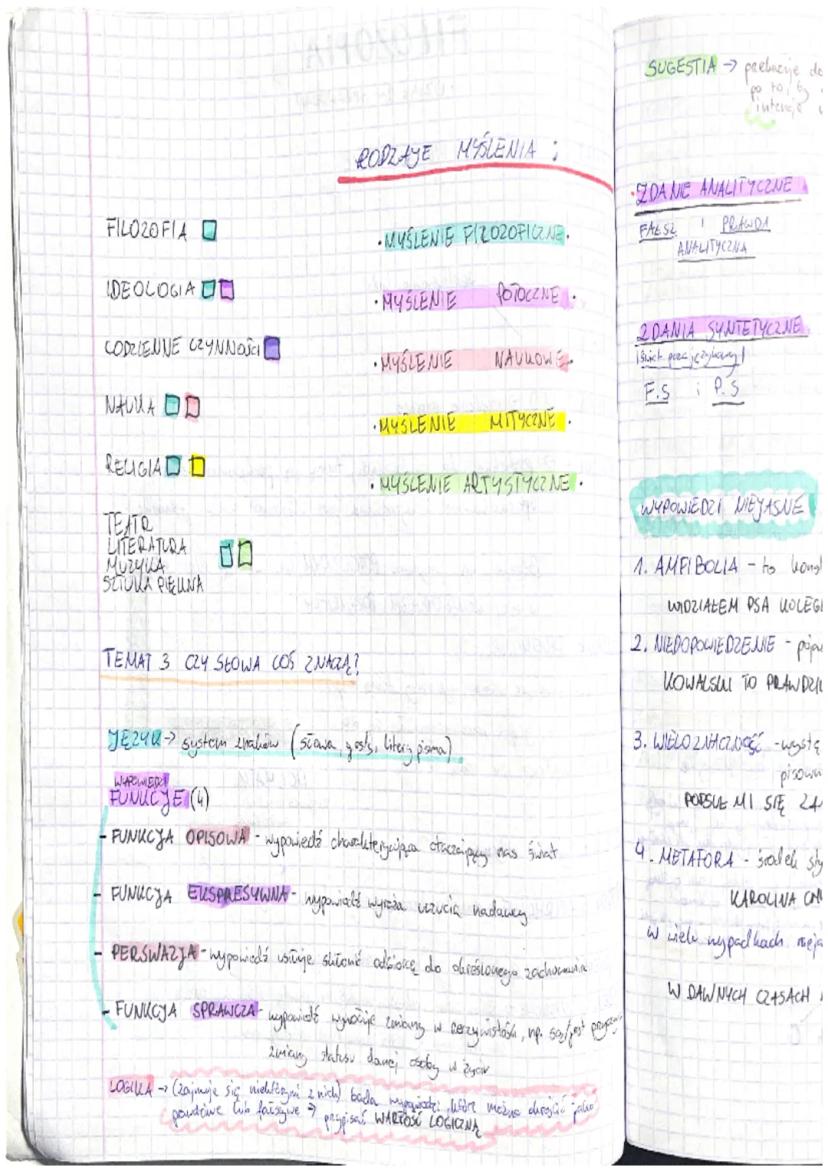 RODZAJE MYŚLENIA :
FILOZOFIA
IDEOLOGIA
CODZIENNE CZYNNOŚCI
NAUKA
RELIGIA
TEATR
LITERATURA
MUZYKA
SZTUKA PIĘKNA
· MYŚLENIE FILOZOFICZNE ·
· MYŚLENIE POTOCZNE ·
· MYŚLENIE NAUKOWE ·
· MYŚLENIE MITYCZNE ·
· MYŚLENIE ARTYSTYCZNE ·
TEMAT 3 CZY SŁOWA COŚ ZNACZĄ?
JĘZYK → system znaków (słowa, gesty, litery pisma)
WYPOWIEDZI
FUNKCJE (4)
- FUNKCJA OPISOWA - wypowiedź charakteryzująca otaczający nas świat
- FUNKCJA EKSPRESYWNA - wypowiedź wyraża uczucia nadawcy
- PERSWAZJA - wypowiedź usiłuje skłonić odbiorcę do określonego zachowania
- FUNKCJA SPRAWCZA - wypowiedź wywołuje zmiany w rzeczywistości, np. są/jest
zmiany statusu danej osoby w życiu
LOGIKA → (zajmuje się niektórymi z nich) bada wypowiedzi, które można określić jako
prawdziwe lub fałszywe → przypisać WARTOŚĆ LOGICZNĄ
SUGESTIA →
po to, by
intencje
· ZDANIE ANALITYCZNE
FAŁSZ i PRAWDA
ANALITYCZNA
ZDANIA SYNTETYCZNE
F.S i P.S
WYPOWIEDZI NIEJASNE
1. AMFIBOLIA - to
WIDZIAŁEM PSA KOLEGI
2. NIEDOPOWIEDZENIE -
KOWALSKI TO
3. WIELOZNACZNOŚĆ -
POPSUŁ MI SIĘ
4. METAFORA - środek
KAROLINA
W wielu wypadkach
W DAWNYCH CZASACH